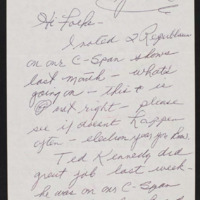 Hi Folks -
I noted 2 Republicans
on our C-Span shows
last month - what's
going on - this is
not right - please
see it doesn't happen
often - election year you know.
Ted Kennedy did
great job last week -
he was on our C-Span